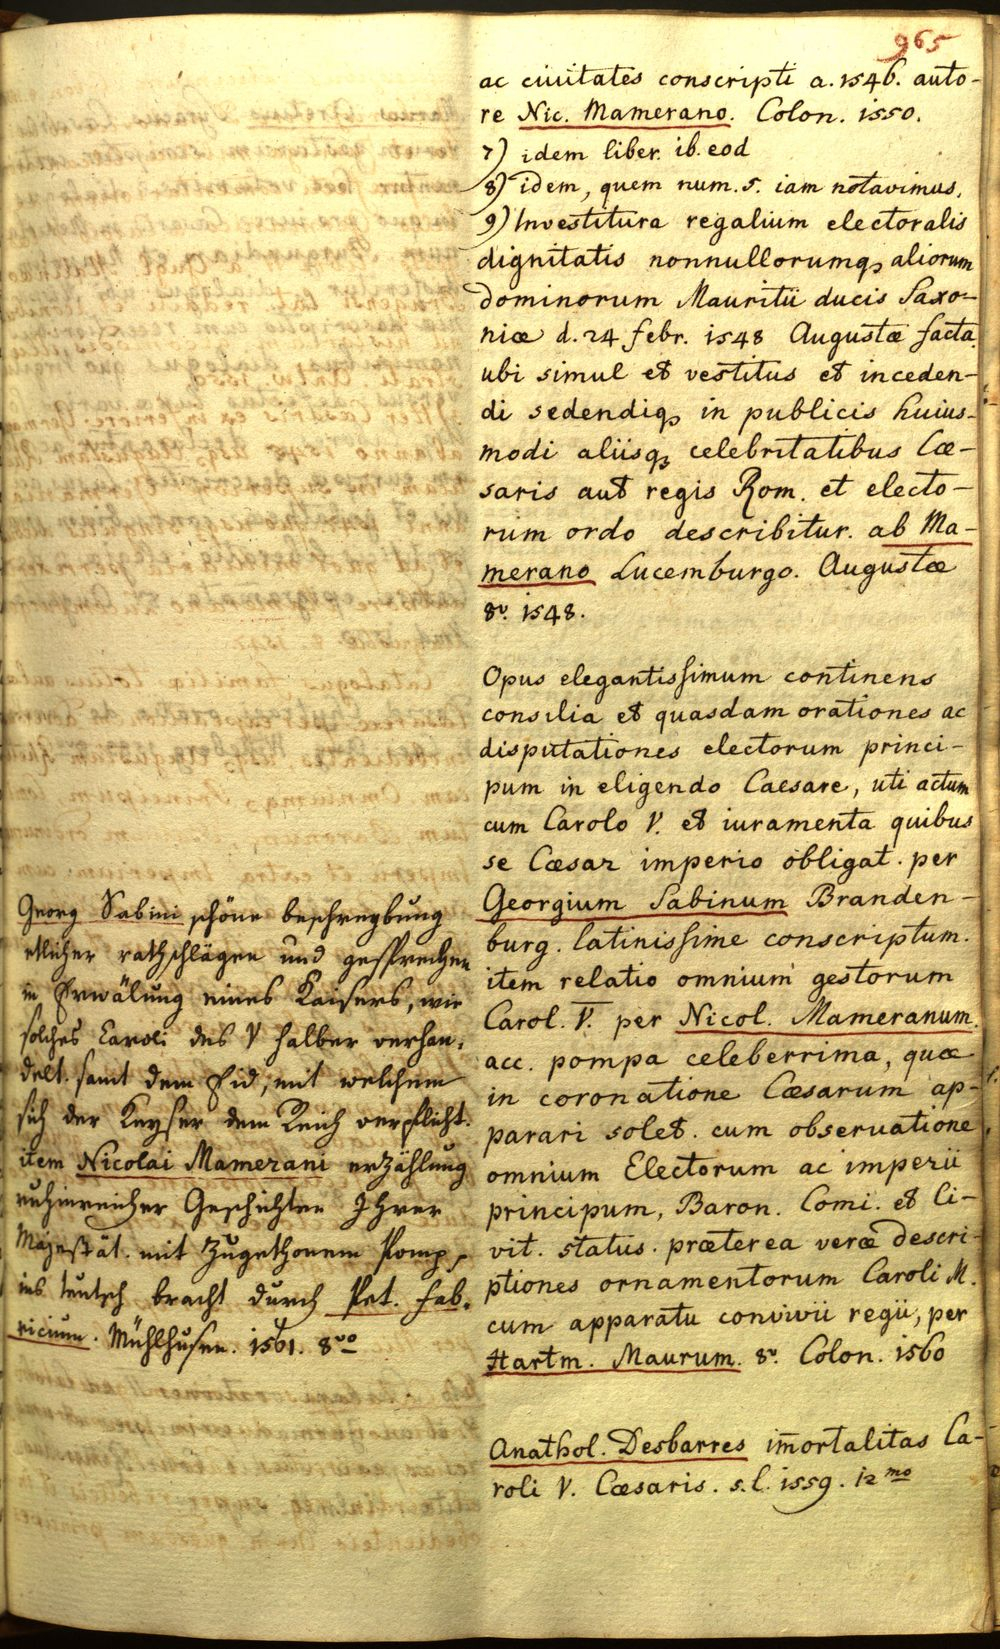 965
ac ciuitates conscripti a. 1546. auto-
re Nic. Mamerano. Colon. 1550.
7) idem liber. ib. eod
8) idem, quem num. 5. iam notavimus.
9) Investitura regalium electoralis
dignitatis nonnullorumqȝ aliorum
dominorum Mauritii ducis Saxo-
niæ d. 24 febr. 1548 Augustæ facta.
ubi simul et vestitus et inceden-
di sedendiqȝ in publicis huius-
modi aliisqȝ celebritatibus Cæ-
saris aut regis Rom. et electo-
rum ordo describitur. ab Ma-
merano Lucemburgo. Augustæ
8v. 1548.
Opus elegantissimum continens
consilia et quasdam orationes ac
disputationes electorum princi-
pum in eligendo Caesare, uti actum
cum Carolo V. et iuramenta quibus
se Cæsar imperio obligat. per
Georgium Sabinum Branden-
burg. latinissime conscriptum.
item relatio omnium gestorum
Carol. V. per Nicol. Mameranum.
acc. pompa celeberrima, quæ
in coronatione Cæsarum ap-
parari solet. cum obseruatione
omnium Electorum ac imperii
principum, Baron. Comi. et Ci-
vit. status. præterea veræ descri-
ptiones ornamentorum Caroli M.
cum apparatu convivii regii, per
Hartm. Maurum. 8v. Colon. 1560
Anathol. Desbarres im̄ortalitas Ca-
roli V. Cæsaris. s. l. 1559. 12mo
Georg Sabini schöne beschreybung
etlicher rathschlägen und gesprechen
in Erwälung eines Kaisers, wie
solches Caroli des V halber verhan-
delt. samt dem Eid, mit welchem
sich der Keyser dem Reich verpflicht.
item Nicolai Mamerani erzählung
ruhmreicher Geschichten Ihrer
Majestät. mit zugethonem Pomp,
ins teutsch bracht durch Pet. Fab-
ricium. Mühlhusen. 1561. 8vo